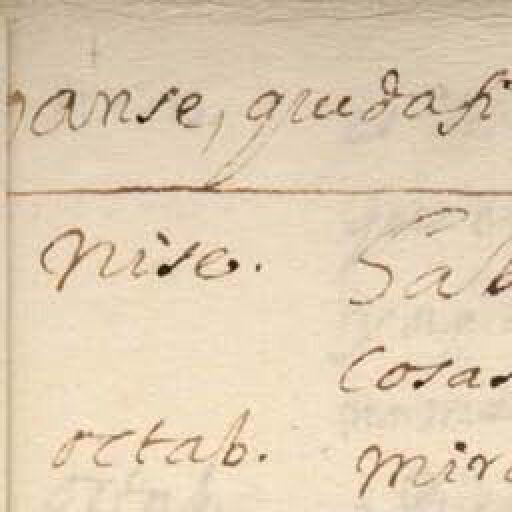 anse, quedasi
Nise. Sal
cosas
octab. mir